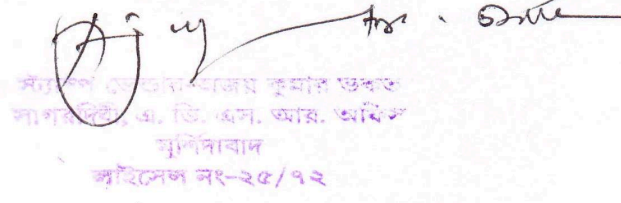 স্ট্যাম্প ভেন্ডার-অজয় কুমার ভকত
সাগরদিঘী, এ. ডি. এস. আর. অফিস
মুর্শিদাবাদ
লাইসেন্স নং-২৫/৭২